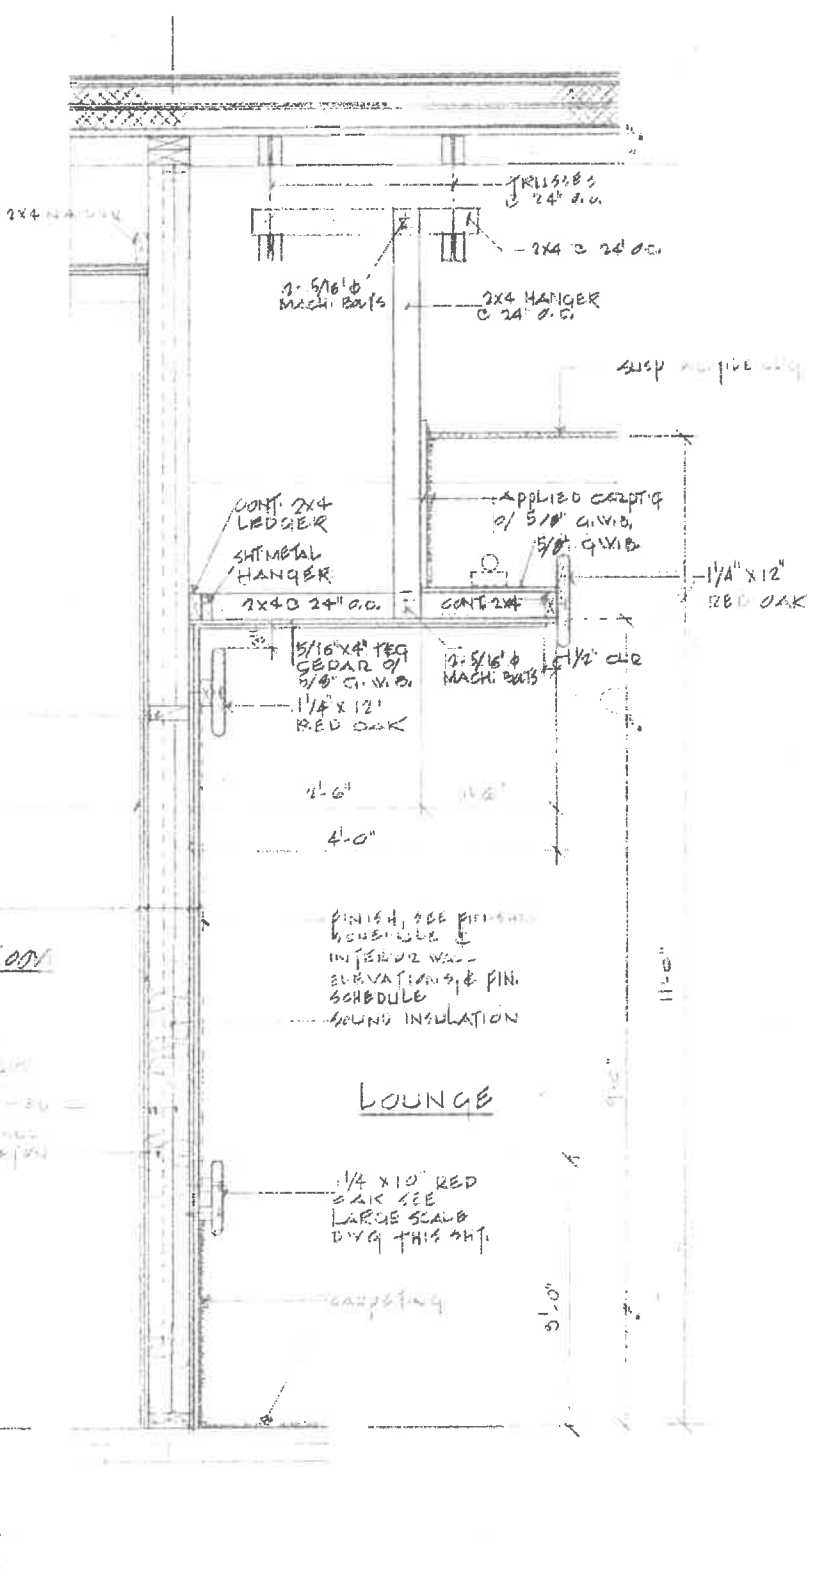 TRUSSES
@ 24" O.C.
2X4
2X4 @ 24" O.C.
2- 5/16" ϕ
MACH. BOLTS
2X4 HANGER
@ 24" O.C.
SUSP
CONT. 2X4
LEDGER
APPLIED CARPT'G
O/ 5/8" G.W.B.
5/8" G.W.B.
SHT METAL
HANGER
1 1/4" X 12"
RED OAK
2X4 @ 24" O.C.
CONT. 2X4
5/16"X4" T&G
CEDAR O/
5/8" G.W.B.
2- 5/16" ϕ
MACH. BOLTS
1 1/2" CLR
1 1/4" X 12"
RED OAK
2'-6"
1'-6"
4'-0"
FINISH, SEE FINISH
SCHEDULE &
INTERIOR WALL
ELEVATIONS, & FIN.
SCHEDULE
SOUND INSULATION
11'-0"
9'-0"
LOUNGE
1 1/4 X 10" RED
OAK SEE
LARGE SCALE
DWG THIS SHT.
CARPETING
3'-0"